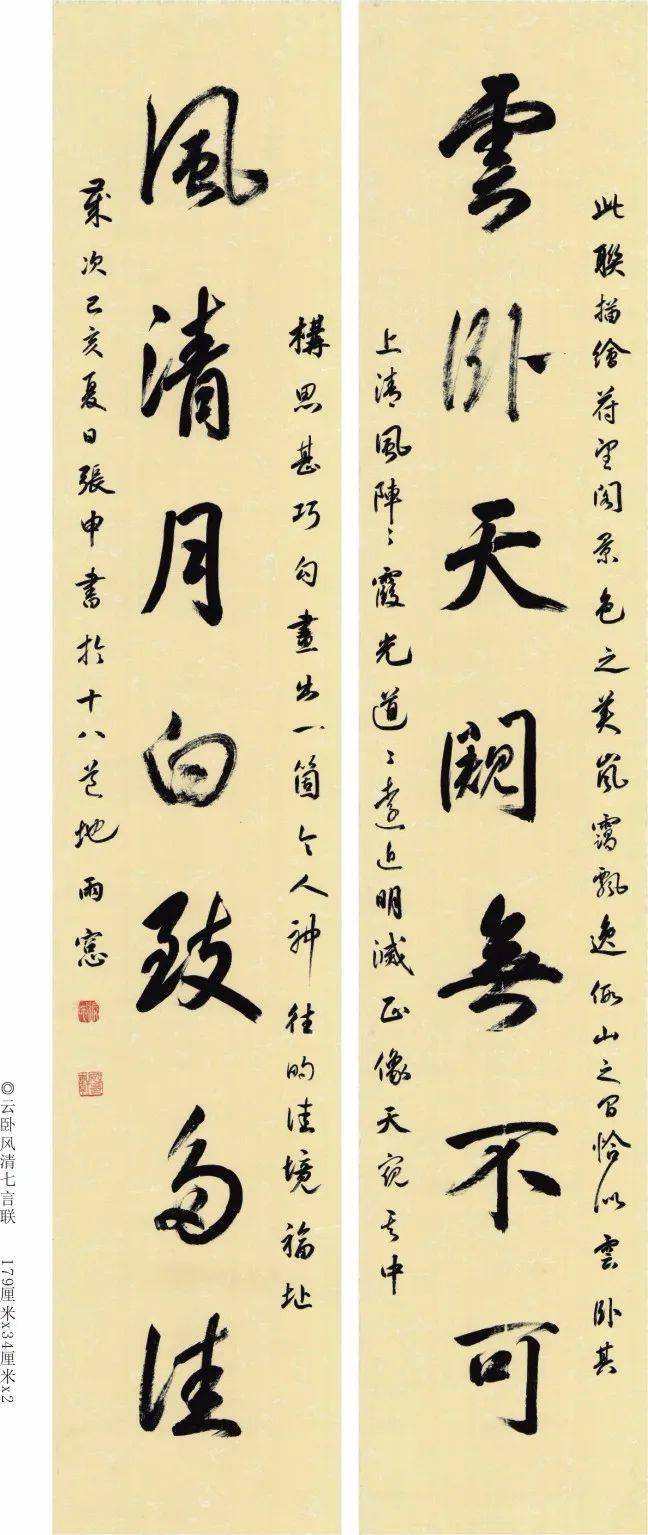 此聯描繪符望閣景色之美嵐靄飄逸假山之間恰似雲卧其
雲卧天闚無不可
上清風陣〻霞光道〻遠近明滅正像天窺其中
構思甚巧勾畫出一箇令人神往的佳境福址
風清月白致多佳
歲次己亥夏日張申書於十八地雨窓
◎云卧风清七言联 179厘米x34厘米x2